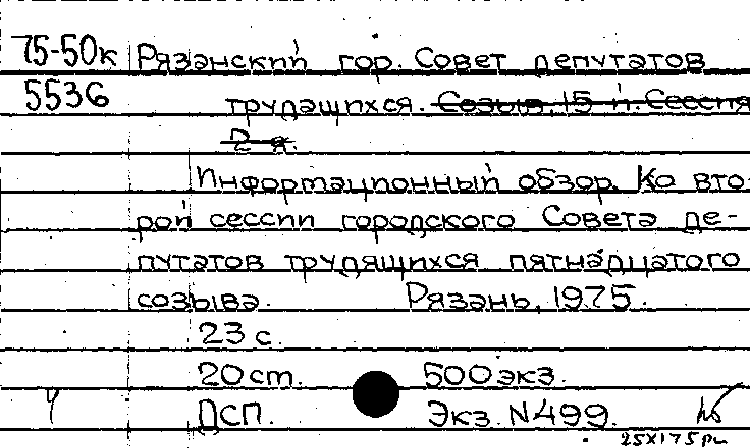 75-50к Рязанский гор. Совет депутатов
5536 трудящихся. Созыв, 15-й. Сессия
2-я.
Информационный обзор. Ко вто-
рой сессии городского Совета де-
путатов трудящихся пятнадцатого
созыва. Рязань, 1975.
23 с.
20 cm. 500 экз.
ДСП. Экз. N499.